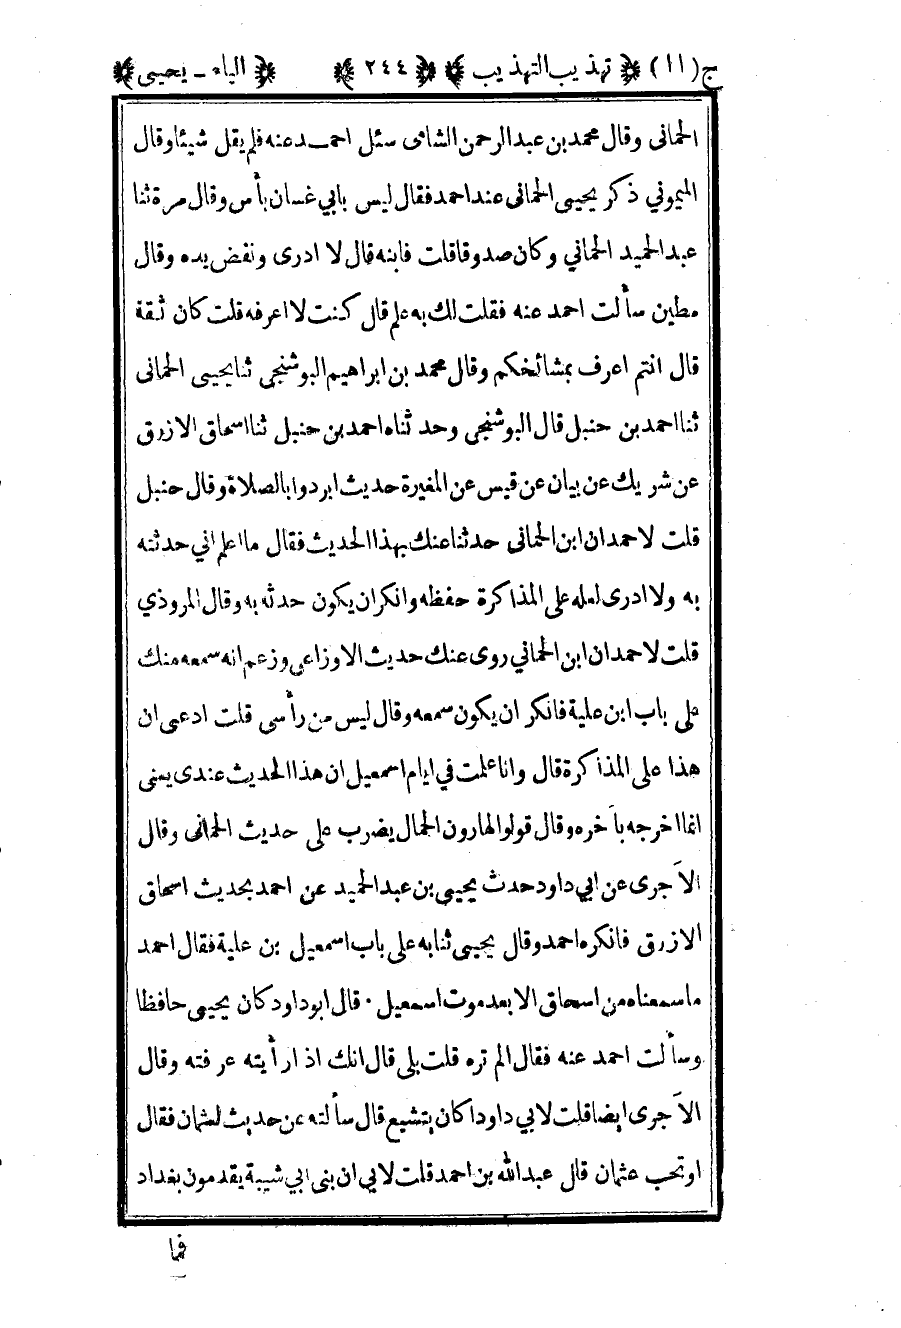 ج (١١) ﴿ تهذيب التهذيب ﴾ ﴿ ٢٤٤ ﴾ ﴿ الياء ـ يحيى ﴾
الحمانى وقال محمد بن عبد الرحمن الشامى سئل احمـد عنه فلم يقل شيئا وقال
الميموني ذكر يحيى الحمانى عند احمد فقال ليس بابي غسان بأس وقال مرة ثنا
عبد الحميد الحماني وكان صدوقا قلت فابنه قال لا ادرى ونفض يده وقال
مطين سألت احمد عنه فقلت لك به علم قال كنت لا اعرفه قلت كان ثقة
قال انتم اعرف بمشائخكم وقال محمد بن ابراهيم البوشنجي ثنا يحيى الحمانى
ثنا احمد بن حنبل قال البوشنجي وحد ثناه احمد بن حنبل ثنا اسحاق الازرق
عن شريك عن بيان عن قيس عن المغيرة حديث ابردوا بالصلاة وقال حنبل
قلت لاحمد ان ابن الحمانى حدثنا عنك بهذا الحديث فقال ما اعلم اني حدثته
به ولا ادرى لعله على المذاكرة حفظه وانكر ان يكون حدثه به وقال المروذي
قلت لاحمد ان ابن الحماني روى عنك حديث الاوزاعي وزعم انه سمعه منك
على باب ابن علية فانكر ان يكون سمعه وقال ليس من رأسى قلت ادعى ان
هذا على المذاكرة قال وانا علمت في ايام اسمعيل ان هذا الحديث عندى يعنى
انما اخرجه بآخره وقال قولوا لهارون الحمال يضرب على حديث الحمانى وقال
الآجرى عن ابي داود حدث يحيى بن عبد الحميد عن احمد بحديث اسحاق
الازرق فانكره احمد وقال يحيى ثنا به على باب اسمعيل بن علية فقال احمد
ما سمعناه من اسحاق الا بعد موت اسمعيل ٠ قال ابو داود كان يحيى حافظا
وسألت احمد عنه فقال الم تره قلت بلى قال انك اذا رأيته عرفته وقال
الآجرى ايضا قلت لابي داود اكان يتشيع قال سألته عن حديث لعثمان فقال
او تحب عثمان قال عبد الله بن احمد قلت لابي ان بنى ابي شيبة يقدمون بغداد
فما